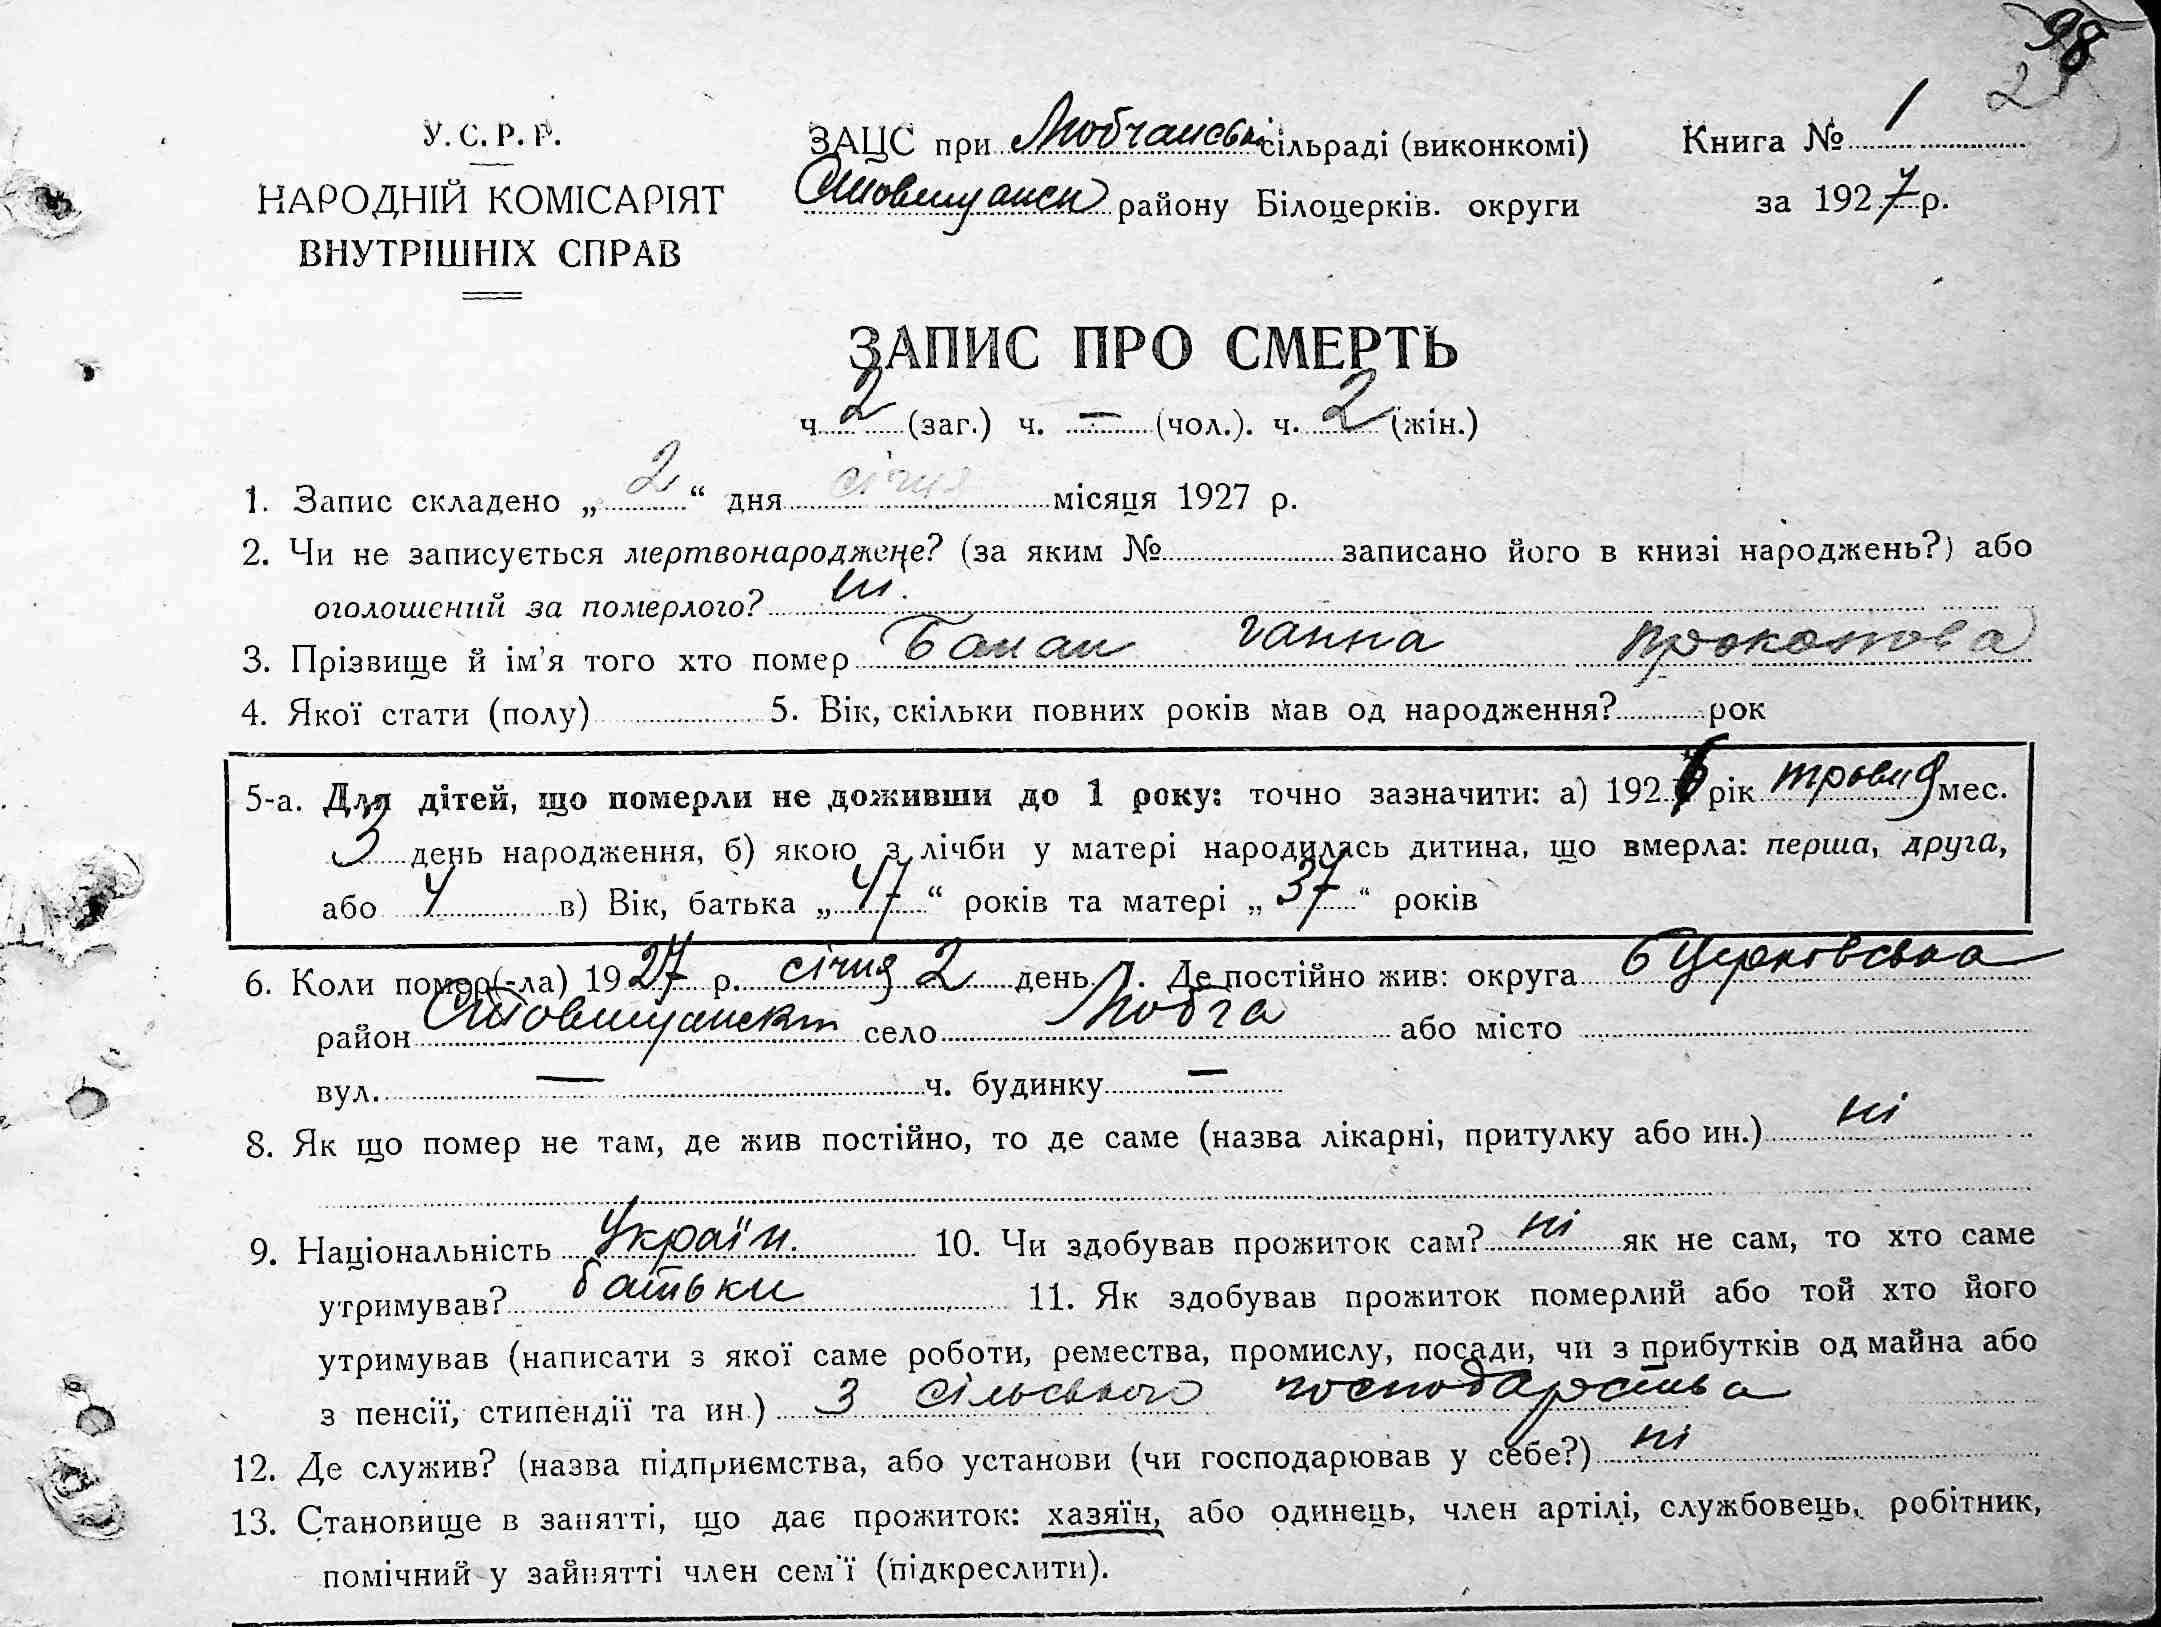 98
2
У. С. Р. Р.
НАРОДНІЙ КОМІСАРІЯТ
ВНУТРІШНІХ СПРАВ
ЗАЦС при Любчанській сільраді (виконкомі)
района Білоцерків. округи
Книга № 1
за 1927 р.
ЗАПИС ПРО СМЕРТЬ
ч. 2 (заг.) ч. — (чол.). ч. 2 (жін.)
1. Запис складено „ 2 “ дня січня місяця 1927 р.
2. Чи не записується мертвонароджене? (за яким № записано його в книзі народжень?) або
оголошений за померлого? ні.
3. Прізвище й ім'я того хто помер Ганна Прокопова
4. Якої стати (полу) 5. Вік, скільки повних років мав од народження? рок
5-а. Для дітей, що померли не доживши до 1 року: точно зазначити: а) 1926 рік травня мес.
3 день народження, б) якою з лічби у матері народилась дитина, що вмерла: перша, друга,
або 4 в) Вік, батька „ 47 “ років та матері „ 37 “ років
6. Коли помер(-ла) 1927 р. січня 2 день 7. Де постійно жив: округа БЦерковська
район село Любча або місто
вул. — ч. будинку —
8. Як що помер не там, де жив постійно, то де саме (назва лікарні, притулку або ин.) ні
9. Національність Україн. 10. Чи здобував прожиток сам? ні як не сам, то хто саме
утримував? батьки 11. Як здобував прожиток померлий або той хто його
утримував (написати з якої саме роботи, ремества, промислу, посади, чи з прибутків од майна або
з пенсії, стипендії та ин.) З сільського господарства
12. Де служив? (назва підприємства, або установи (чи господарював у себе?) ні
13. Становище в занятті, що дає прожиток: хазяїн, або одинець, член артілі, службовець, робітник,
помічний у зайнятті член сем'ї (підкреслити).